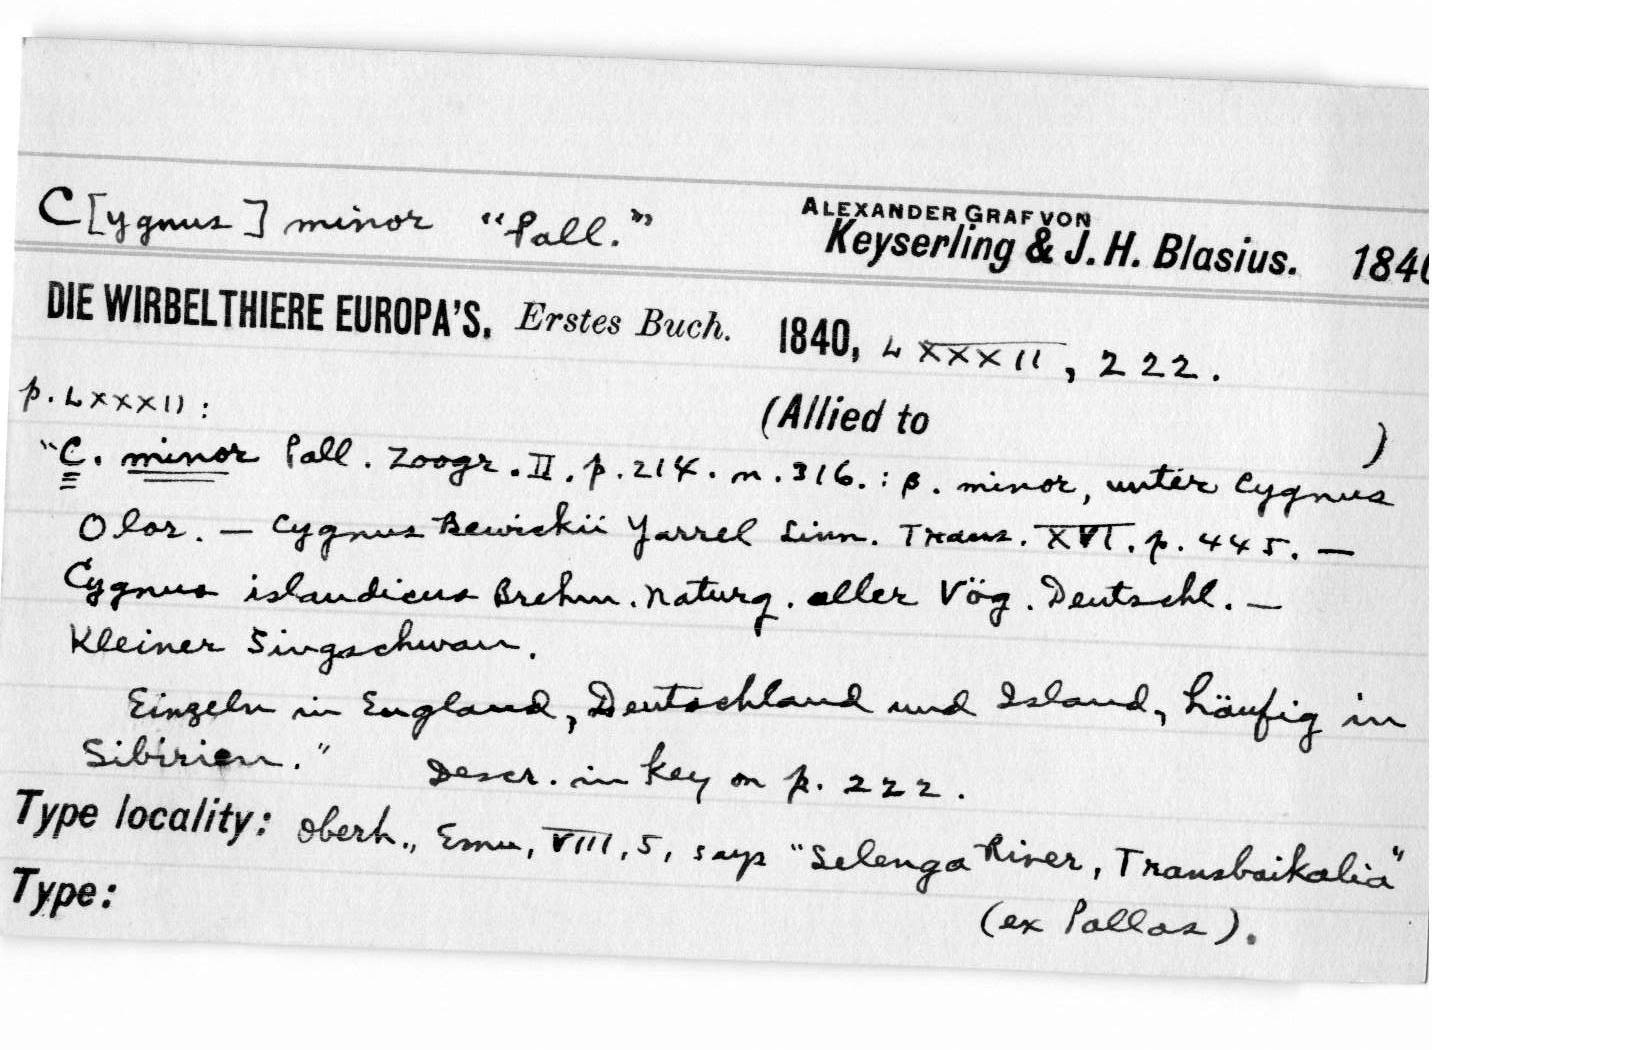 C[ygnus] minor "Pall."
ALEXANDER GRAF VON
Keyserling & J. H. Blasius. 1840
DIE WIRBELTHIERE EUROPA'S. Erstes Buch. 1840, LXXXII, 222.
p. LXXXII:
(Allied to )
"C. minor Pall. Zoogr. II. p. 214. n. 316. : β. minor, unter Cygnus
Olor. — Cygnus Bewickii Yarrel Linn. Trans. XVI. p. 445. —
Cygnus islandicus Brehm. Naturg. aller Vög. Deutschl. —
Kleiner Singschwan.
Einzeln in England, Deutschland und Island, häufig in
Sibirien." Descr. in key on p. 222.
Type locality: Oberh., Emu, VIII, 5, says "Selenga River, Transbaikalia"
Type:
(ex Pallas).